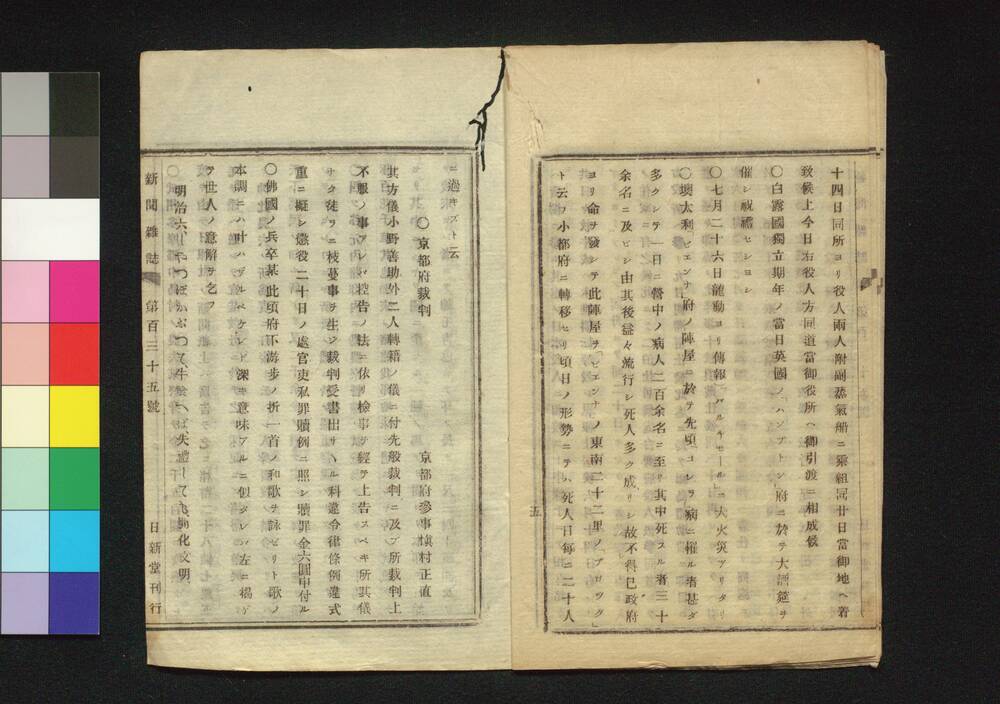 十四日同所ヨリ役人兩人附副蒸氣船ニ乘組同廿日當御地ヘ着
致候上今日右役人方同道當御役所ヘ御引渡ニ相成候
〇白露國獨立期年ノ當日英國ノ「ハンプトン」府ニ於テ大酒筵ヲ
催シ祝禱セシヨシ
〇七月二十六日龍動ヨリ傳報「バルチモール」大火災アリタリ
〇墺太利ビエンナ府ノ陣屋ニ於テ先頃「コレラ」病ニ罹ル者甚ダ
多クシテ一日ニ營中ノ病人二百余名ニ至リ其中死スル者三十
余名ニ及ビシ由其後益々流行シ死人多ク成リシ故不得已政府
ヨリ命ヲ發シテ此陣屋ヲ「ビエンナ」ノ東南二十二里ノ「ブロツク」
ト云フ小都府ニ轉移セリ頃日ノ形勢ニテハ死人日每ニ二十人
五
ニ過キズト云
〇京都府裁判
京都府參事槇村正直
其方儀小野善助外二人轉籍ノ儀ニ付先般裁判ニ及ブ所裁判上
不服ノ事アレバ控告ノ法ニ依リ檢事ヲ經テ上告スベキ所其儀
ナク徒ラニ枝蔓事ヲ生シ裁判受書出サヾル科違令律條例違式
重ニ擬シ懲役二十日ノ處官吏私罪贖例ニ照シ贖罪金六圓申付ル
〇佛國ノ兵卒某此頃府下游歩ノ折一首ノ和歌ヲ詠ゼリト歌ノ
本調ニハ叶ハザルベケレド深キ意味アルニ似タレバ左ニ揭ゲ
テ世人ノ意解ヲ乞フ
〇明治六
新聞雜誌
第百三十五號
日新堂刊行